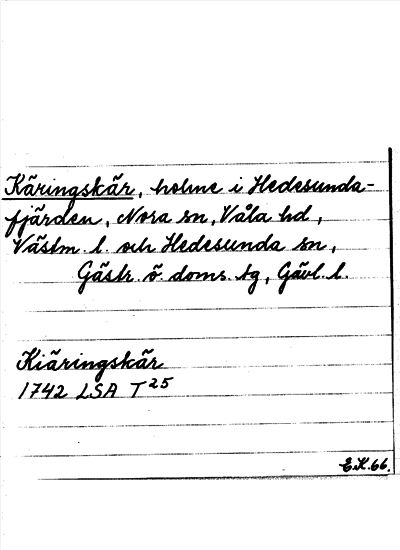 Käringskär, holme i Hedesunda-
fjärden, Nora sn, Våla hd,
Västm. l. och Hedesunda sn,
Gästr. ö. doms. tg, Gävl. l.
Kiäringskär
1742 LSA T25
E.K.66.